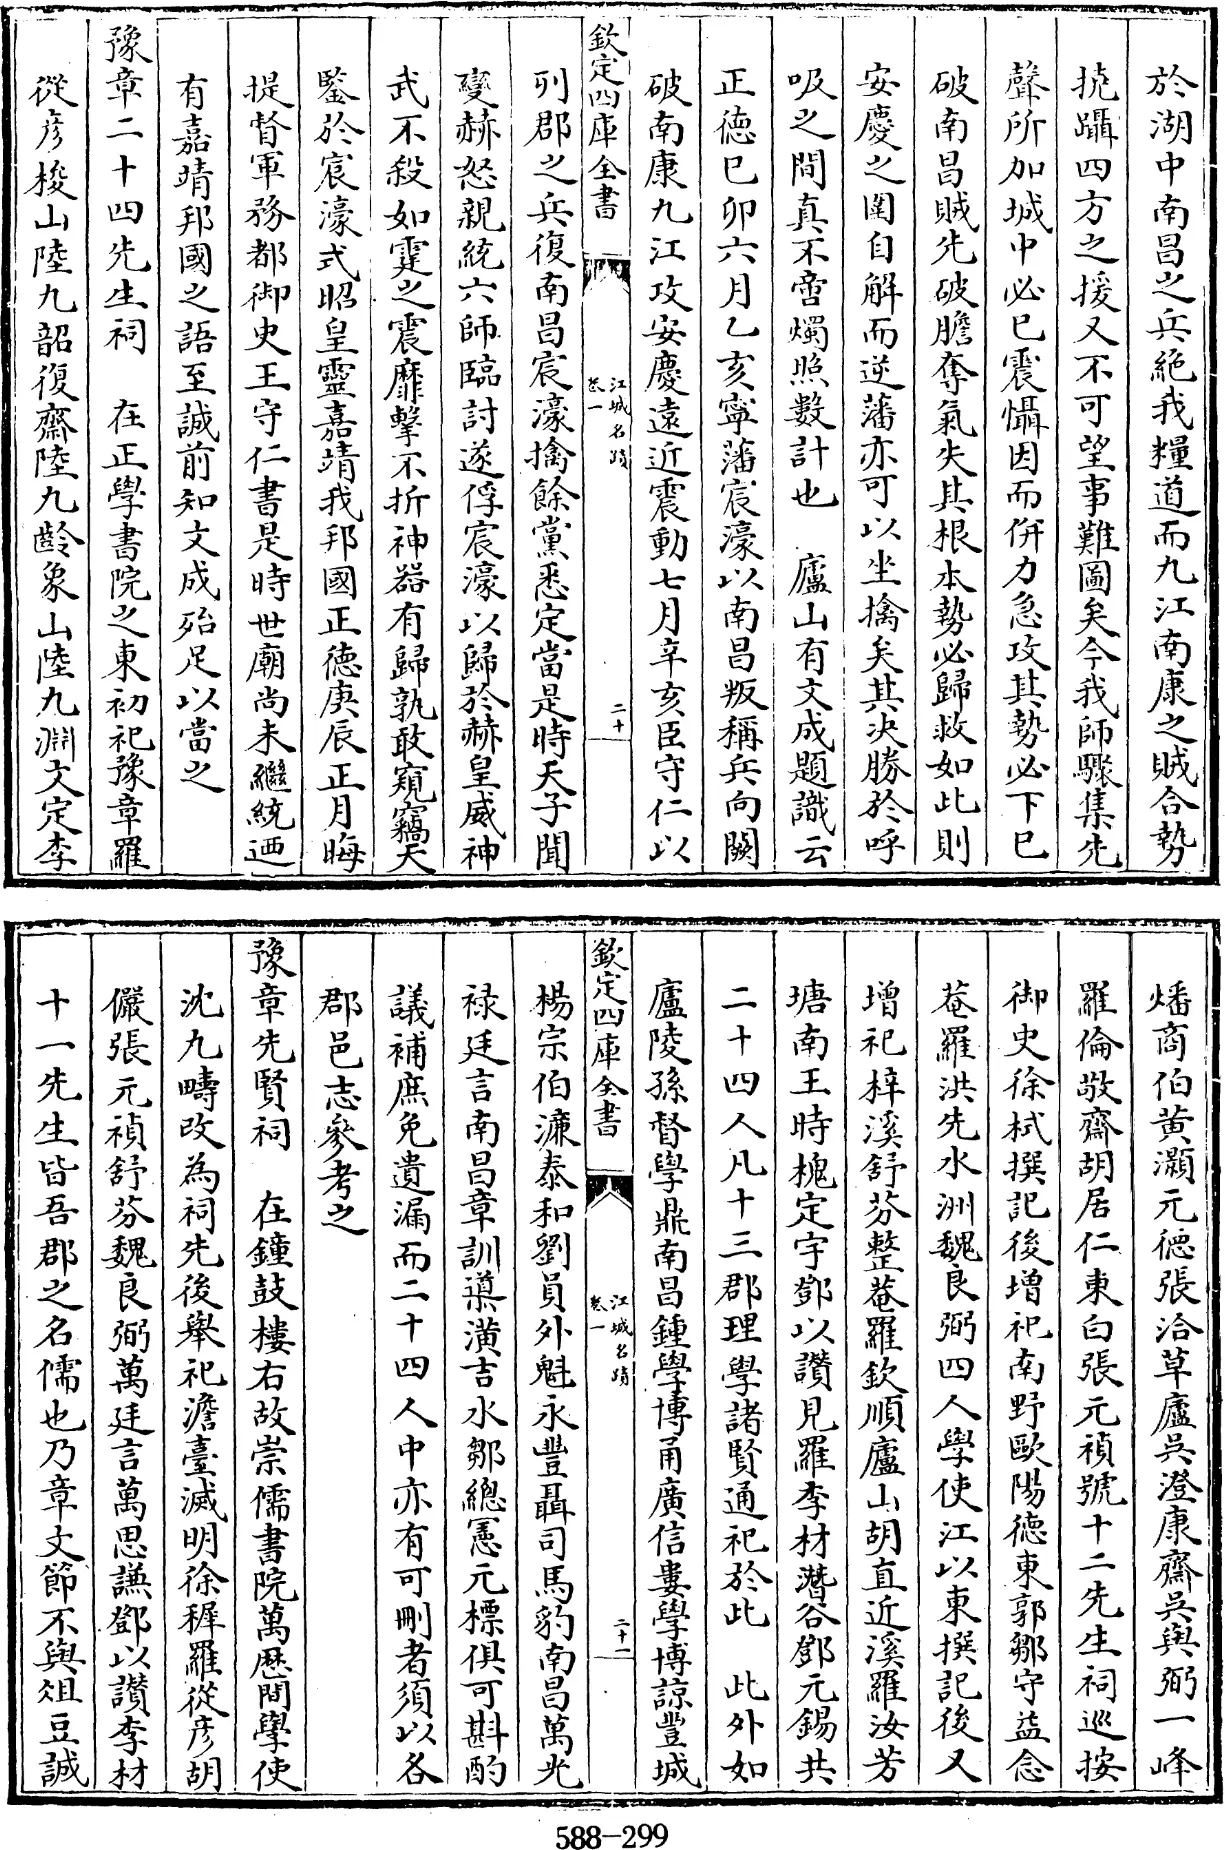 於湖中南昌之兵絶我糧道而九江南康之賊合勢
撓躡四方之援又不可望事難圖矣今我師驟集先
聲所加城中必已震懾因而併力急攻其勢必下已
破南昌賊先破膽奪氣失其根本勢必歸救如此則
安慶之圍自解而逆藩亦可以坐擒矣其決勝於呼
吸之間真不啻燭照數計也　廬山有文成題識云
正德已卯六月乙亥寧藩宸濠以南昌叛稱兵向闕
破南康九江攻安慶遠近震動七月辛亥臣守仁以
欽定四庫全書　江城名蹟　卷一　二十
列郡之兵復南昌宸濠擒餘黨悉定當是時天子聞
變赫怒親統六師臨討遂俘宸濠以歸於赫皇威神
武不殺如霆之震靡擊不折神器有歸孰敢窺竊天
鑒於宸濠式昭皇靈嘉靖我邦國正德庚辰正月晦
提督軍務都御史王守仁書是時世廟尚未繼統廼
有嘉靖邦國之語至誠前知文成殆足以當之
豫章二十四先生祠　在正學書院之東初祀豫章羅
從彦梭山陸九韶復齋陸九齡象山陸九淵文定李
燔商伯黄灝元德張洽草廬吳澄康齋吳與弼一峰
羅倫敬齋胡居仁東白張元禎號十二先生祠巡按
御史徐栻撰記後增祀南野歐陽德東郭鄒守益念
菴羅洪先水洲魏良弼四人學使江以東撰記後又
增祀梓溪舒芬整菴羅欽順廬山胡直近溪羅汝芳
瑭南王時槐定宇鄧以讚見羅李材潛谷鄧元錫共
二十四人凡十三郡理學諸賢通祀於此　此外如
廬陵孫督學鼎南昌鍾學博甬廣信婁學博諒豐城
欽定四庫全書　江城名蹟　卷一　二十一
楊宗伯濂泰和劉員外魁永豐聶司馬豹南昌萬光
禄廷言南昌章訓導潢吉水鄒總憲元標俱可斟酌
議補庶免遺漏而二十四人中亦有可刪者須以各
郡邑志參考之
豫章先賢祠　在鐘鼓樓右故崇儒書院萬歴間學使
沈九疇改為祠先後舉祀澹臺滅明徐穉羅從彦胡
儼張元禎舒芬魏良弼萬廷言萬思謙鄧以讚李材
十一先生皆吾郡之名儒也乃章文節不與俎豆誠
588-299